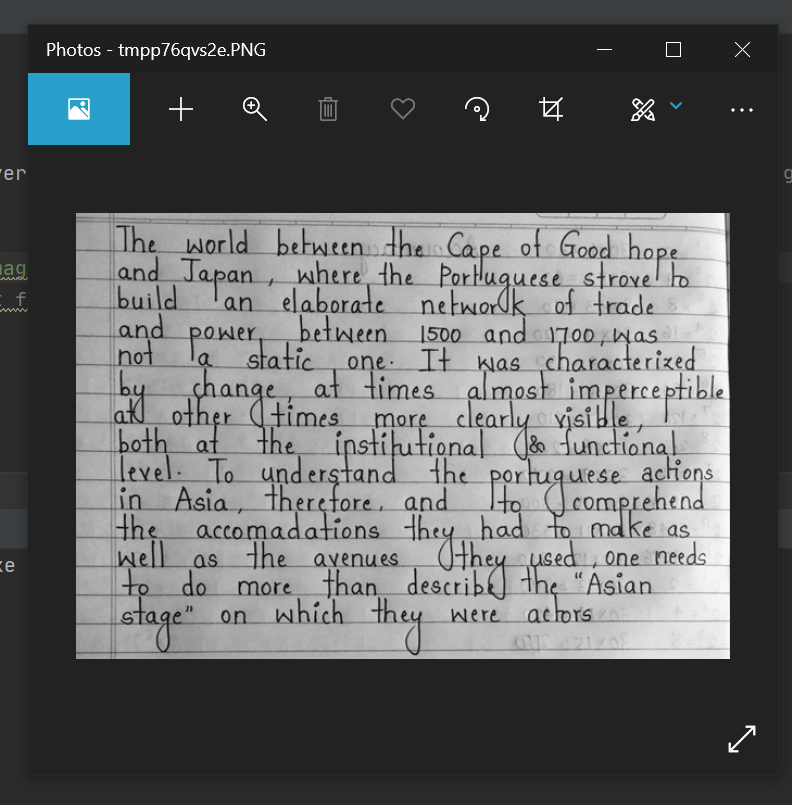 Photos - tmpp76qvs2e.PNG
ver
g
mag
t f
ke
The world between the Cape of Good hope
and Japan, where the Portuguese strove to
build an elaborate network of trade
and power, between 1500 and 1700, was
not a static one. It was characterized
by change, at times almost imperceptible
at other times more clearly visible,
both at the institutional & functional
level. To understand the portuguese actions
in Asia, therefore, and to comprehend
the accomadations they had to make as
well as the avenues they used, one needs
to do more than describe the "Asian
stage" on which they were actors